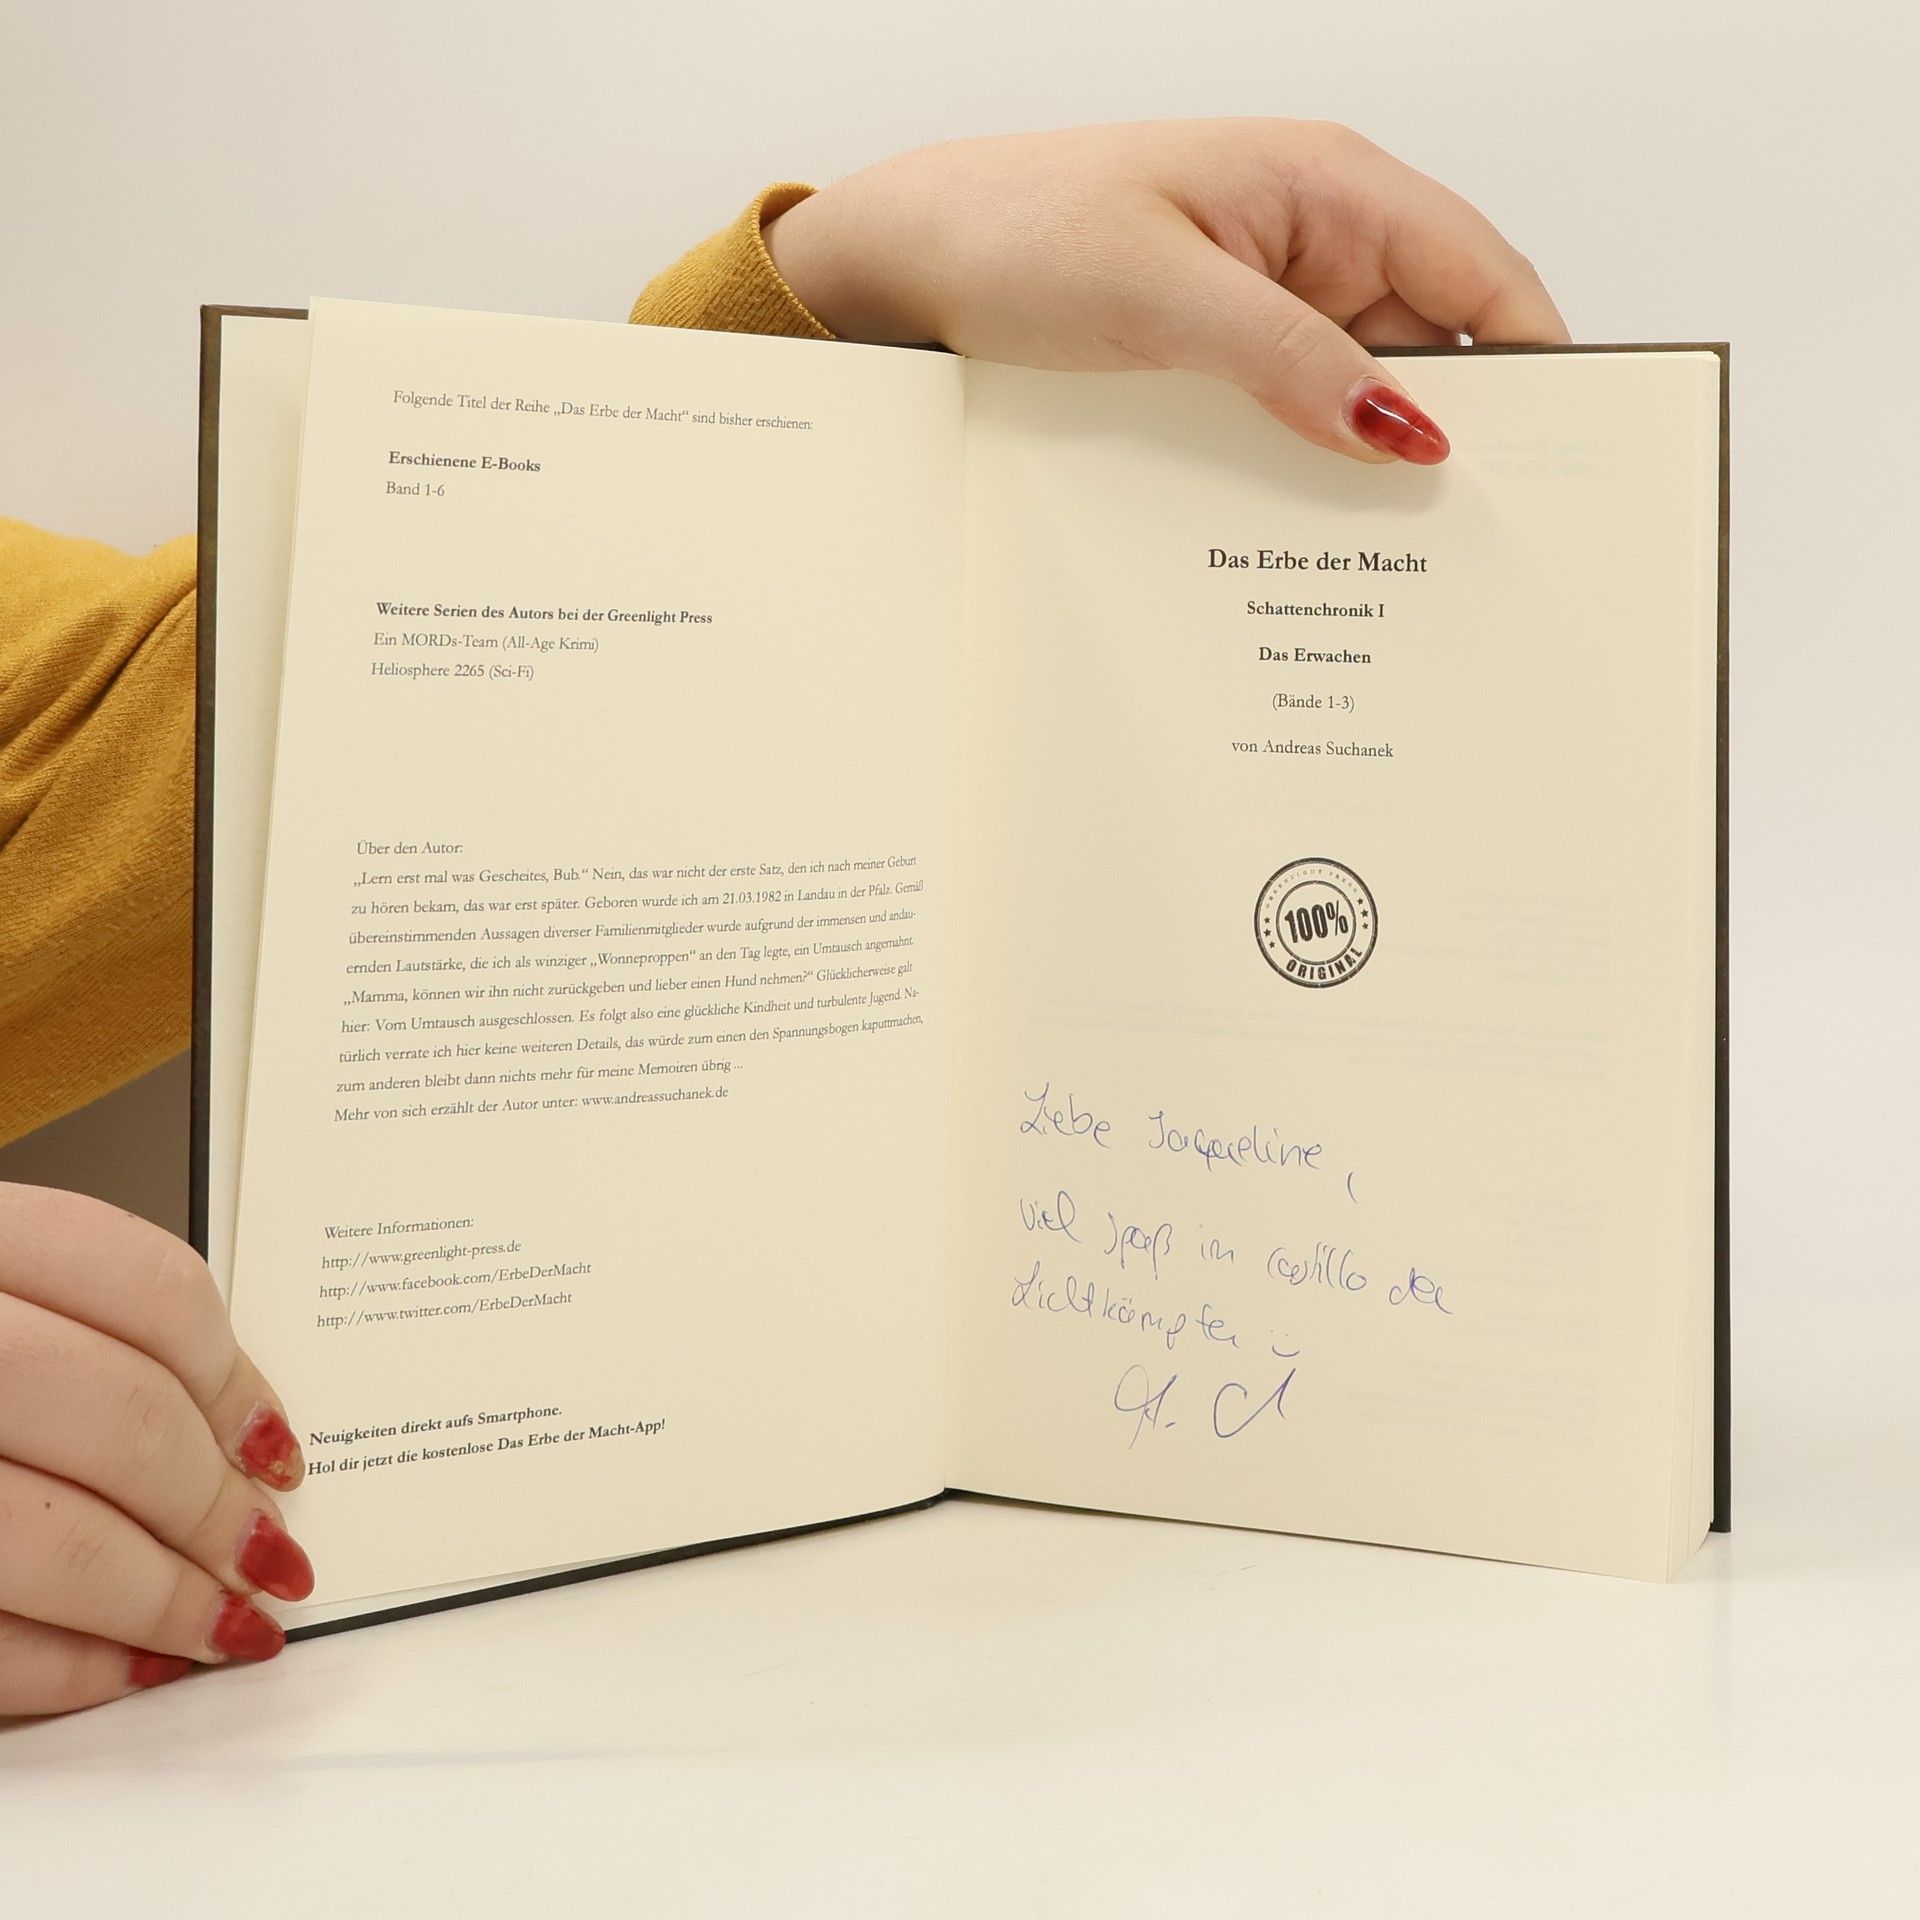 Folgende Titel der Reihe „Das Erbe der Macht“ sind bisher erschienen:
Erschienene E-Books
Band 1-6
Weitere Serien des Autors bei der Greenlight Press
Ein MORDs-Team (All-Age Krimi)
Heliosphere 2265 (Sci-Fi)
Über den Autor:
„Lern erst mal was Gescheites, Bub.“ Nein, das war nicht der erste Satz, den ich nach meiner Geburt
zu hören bekam, das war erst später. Geboren wurde ich am 21.03.1982 in Landau in der Pfalz. Gemäß
übereinstimmenden Aussagen diverser Familienmitglieder wurde aufgrund der immensen und andau-
ernden Lautstärke, die ich als winziger „Wonneproppen“ an den Tag legte, ein Umtausch angemahnt.
„Mamma, können wir ihn nicht zurückgeben und lieber einen Hund nehmen?“ Glücklicherweise galt
hier: Vom Umtausch ausgeschlossen. Es folgt also eine glückliche Kindheit und turbulente Jugend. Na-
türlich verrate ich hier keine weiteren Details, das würde zum einen den Spannungsbogen kaputtmachen,
zum anderen bleibt dann nichts mehr für meine Memoiren übrig ...
Mehr von sich erzählt der Autor unter: www.andreassuchanek.de
Weitere Informationen:
http://www.greenlight-press.de
http://www.facebook.com/ErbeDerMacht
http://www.twitter.com/ErbeDerMacht
Neuigkeiten direkt aufs Smartphone.
Hol dir jetzt die kostenlose Das Erbe der Macht-App!
Das Erbe der Macht
Schattenchronik I
Das Erwachen
(Bände 1-3)
von Andreas Suchanek
GREENLIGHT PRESS
100%
ORIGINAL
Liebe Jacqueline,
viel Spaß im Castillo der
Lichtkämpfer :)